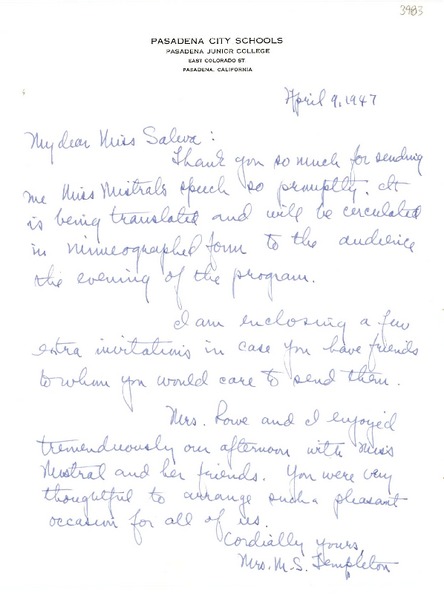 3983
PASADENA CITY SCHOOLS
PASADENA JUNIOR COLLEGE
EAST COLORADO ST
PASADENA, CALIFORNIA
April 9, 1947
My dear Miss Saleva:
Thank you so much for sending
me Miss Mistral's speech so promptly. It
is being translated and will be circulated
in mimeographed form to the audience
the evening of the program.
I am enclosing a few
extra invitations in case you have friends
to whom you would care to send them.
Mrs. Rowe and I enjoyed
tremenduously our afternoon with Miss
Mistral and her friends. You were very
thoughtful to arrange such a pleasant
occasion for all of us.
Cordially yours,
Mrs. M. S. Templeton